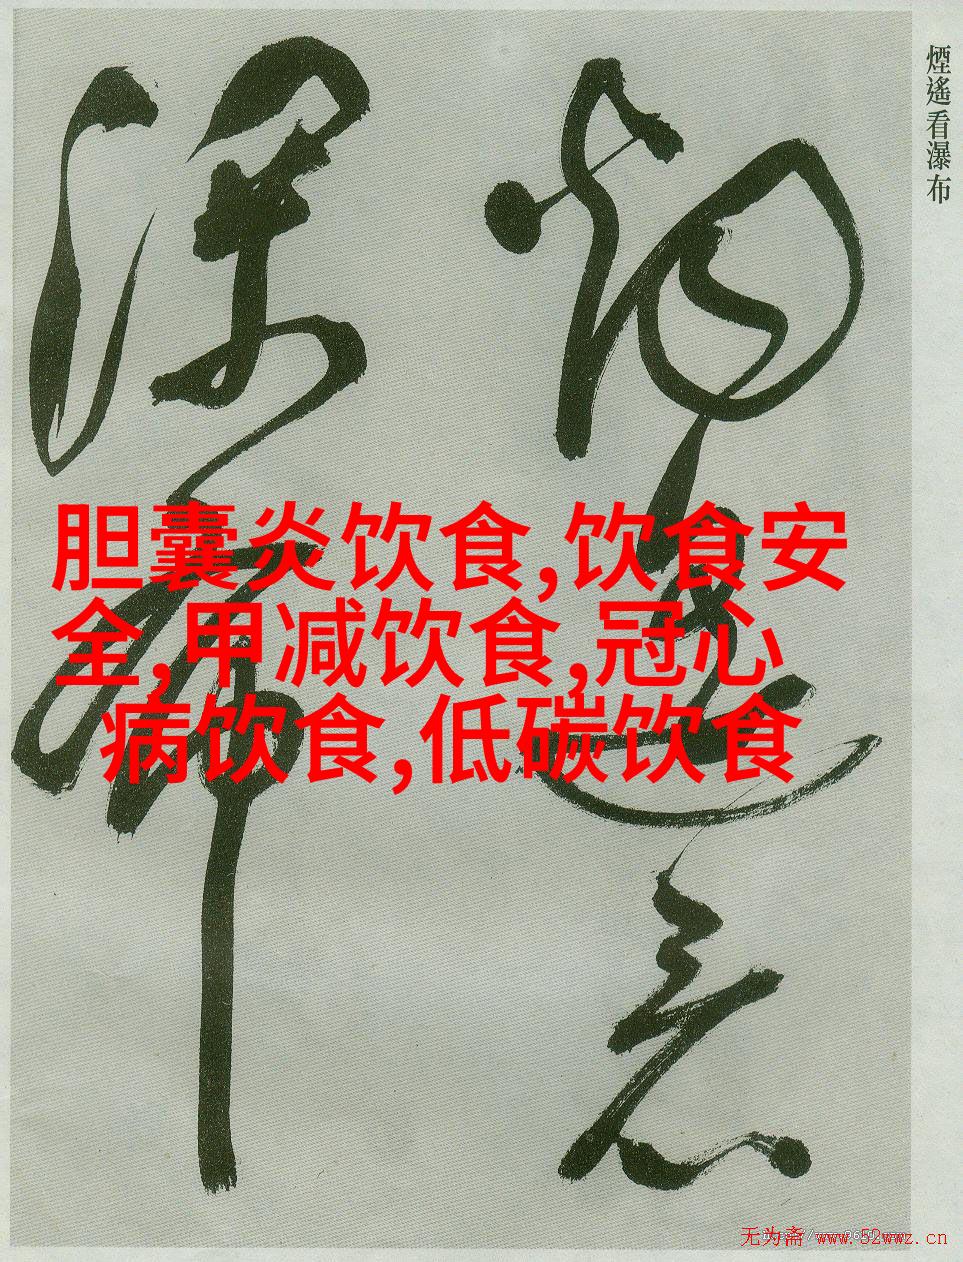 煙遙看瀑布
胆囊炎饮食,饮食安
全,甲减饮食,冠心
病饮食,低碳饮食
无为斋 www.52wwz.cn